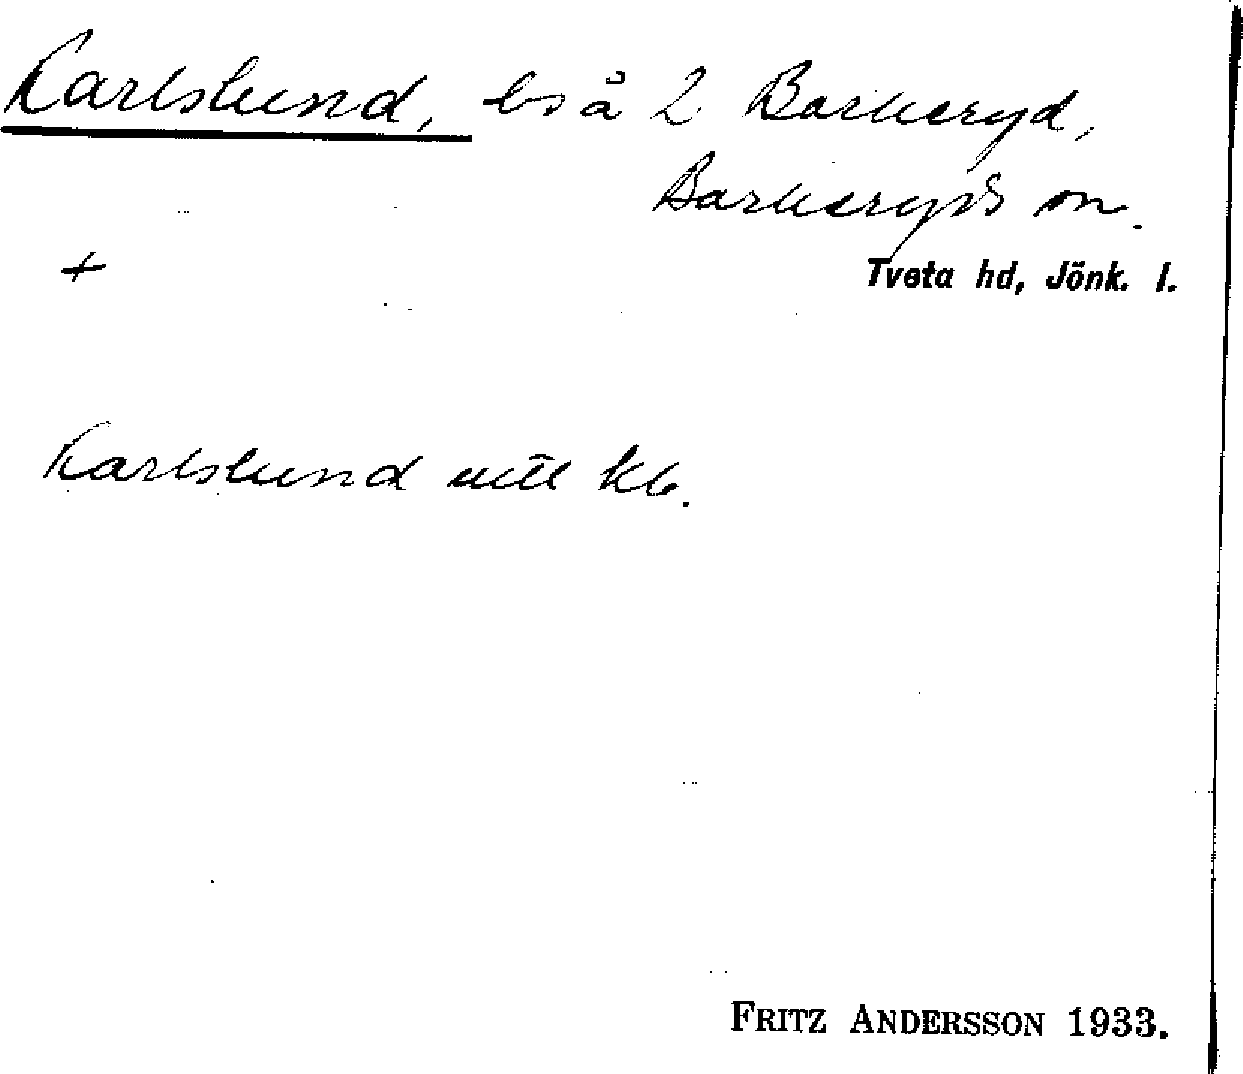 Karlslund, bs å 2 Barkeryd,
Barkeryds sn.
+
Tveta hd, Jönk. l.
Karlslund enl kb.
FRITZ ANDERSSON 1933.